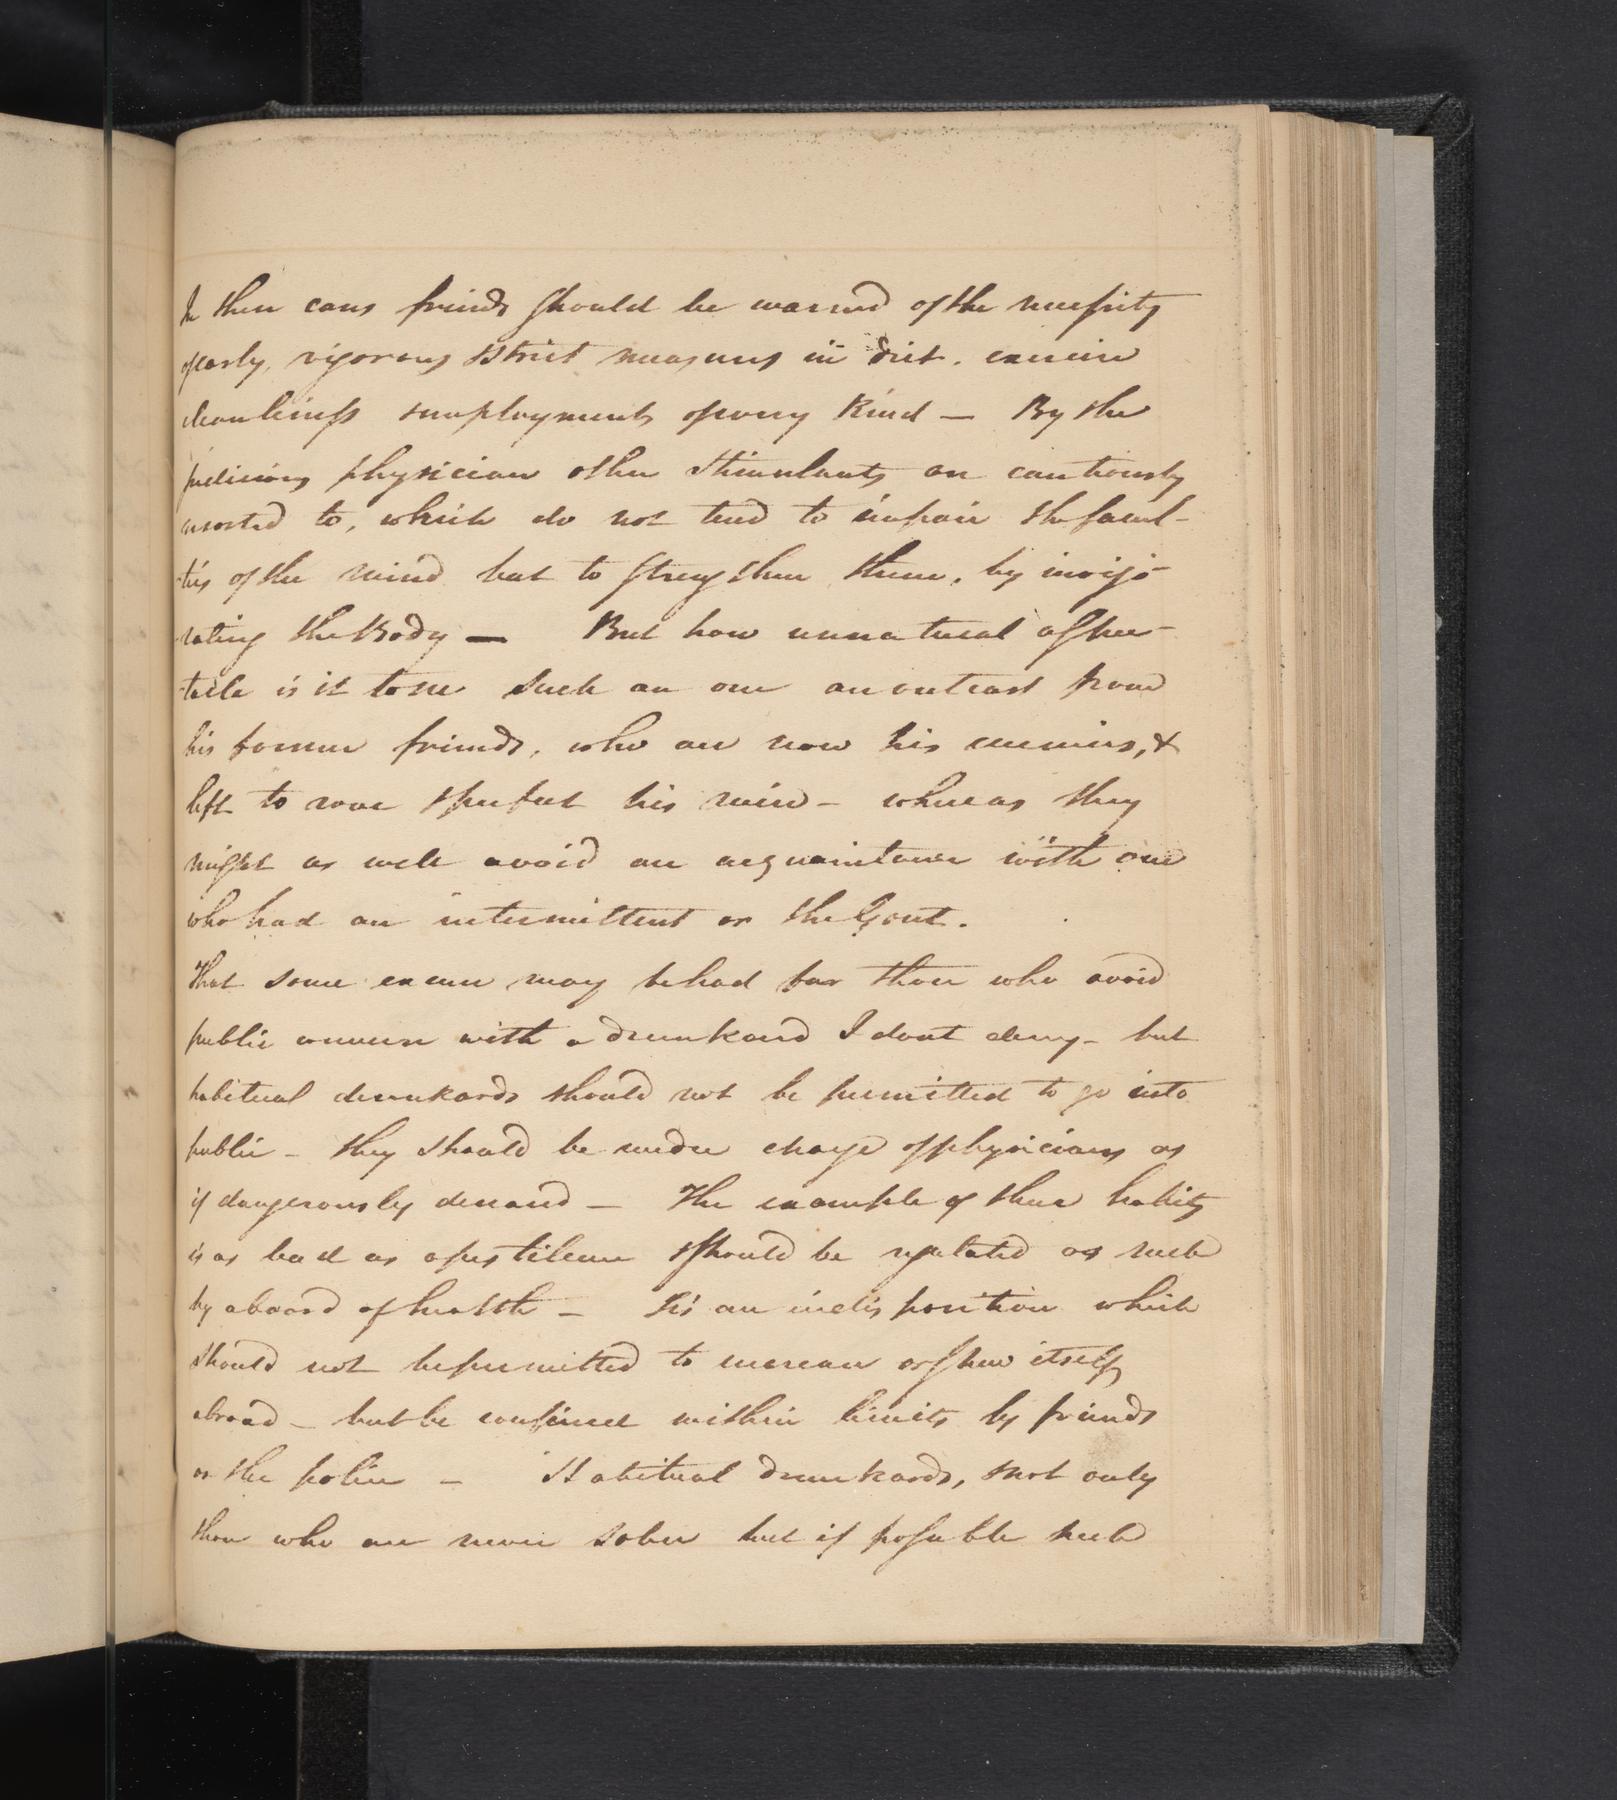 In these cases friends should be warned of the necessity
of early, vigorous & strict measures in diet. exercise
cleanliness & employments of every Kind — By the
judicious physician other stimulants are cautiously
resorted to, which do not tend to impair the facul-
-ties of the mind but to strengthen them, by invigo-
-rating the Body — But how unnatural a spec-
-tacle is it to see such an one an outcast from
his former friends, who are now his enemies, &
left to rove & perfect his ruin — whereas they
might as well avoid an acquaintance with one
who had an intermittent or the Gout.
That some excuse may be had for those who avoid
public converse with a drunkard I dont deny — but
habitual drunkards should not be permitted to go into
public — they should be under charge of physicians as
if dangerously diseased — The example of these habits
is as bad as a pestilence & should be regulated as such
by a board of health — Tis an indisposition which
should not be permitted to increase or shew itself
abroad — but be confined within limits by friends
or the police — Habitual drunkards, & not only
those who are never sober but if possible such